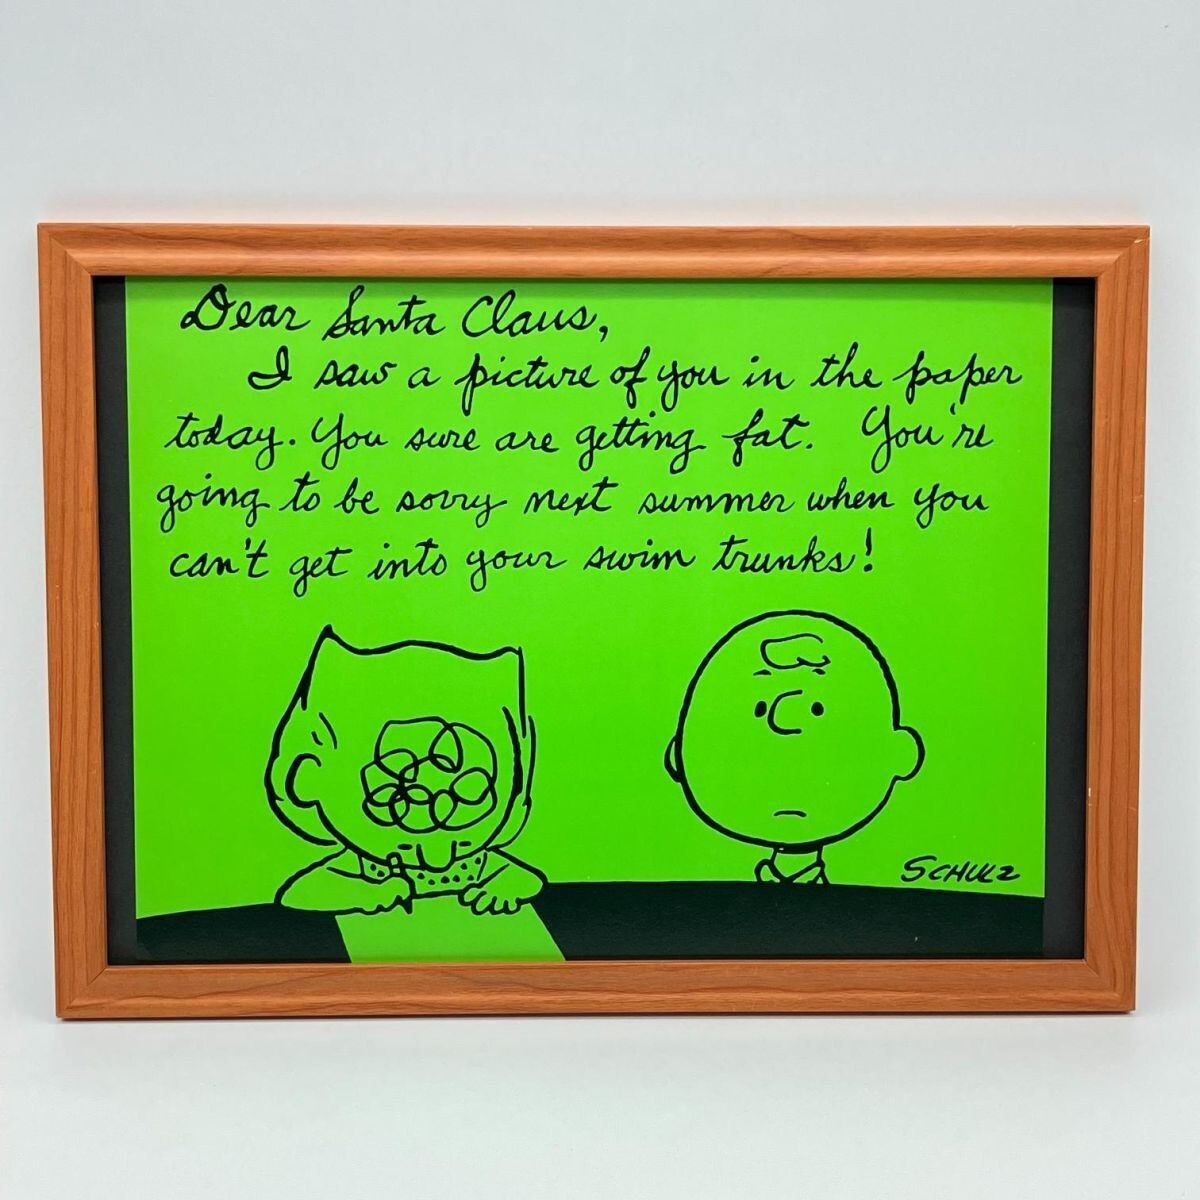 Dear Santa Claus,
I saw a picture of you in the paper
today. You sure are getting fat. You're
going to be sorry next summer when you
can't get into your swim trunks!
SCHULZ